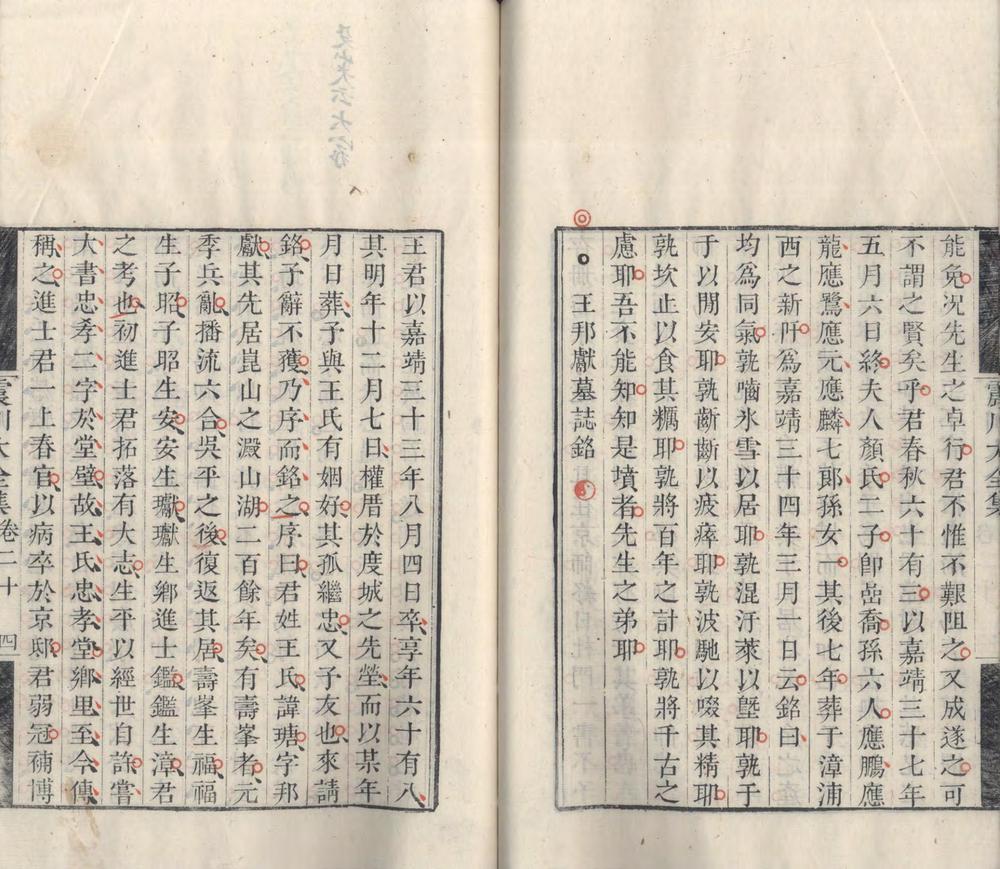 能免况先生之卓行君不惟不艱阻之又成遂之可
不謂之賢矣乎君春秋六十有三以嘉靖三十七年
五月六日終夫人顏氏二子卽嵒喬孫六人應鵬應
龍應鷺應元應麟七郞孫女一其後七年葬于漳浦
西之新阡爲嘉靖三十四年三月一日云銘曰
均爲同氣孰嚙氷雪以居耶孰混汙萊以墾耶孰于
于以閒安耶孰齗齗以疲瘁耶孰波馳以啜其精耶
孰坎止以食其糲耶孰將百年之計耶孰將千古之
慮耶吾不能知知是墳者先生之弟耶
王邦獻墓誌銘
王君以嘉靖三十三年八月四日卒享年六十有八
其明年十二月七日權厝於度城之先塋而以某年
月日葬予與王氏有姻好其孤繼忠又子友也來請
銘予辭不獲乃序而銘之序曰君姓王氏諱瑭字邦
獻其先居崑山之澱山湖二百餘年矣有壽峯者元
季兵亂播流六合吳平之後復返其居壽峯生福福
生子昭子昭生安安生瓛瓛生鄉進士鑑鑑生漳君
之考也初進士君拓落有大志生平以經世自許嘗
大書忠孝二字於堂壁故王氏忠孝堂鄉里至今傳
稱之進士君一上春官以病卒於京邸君弱冠補博
震川大全集卷二十 四
震川大全集